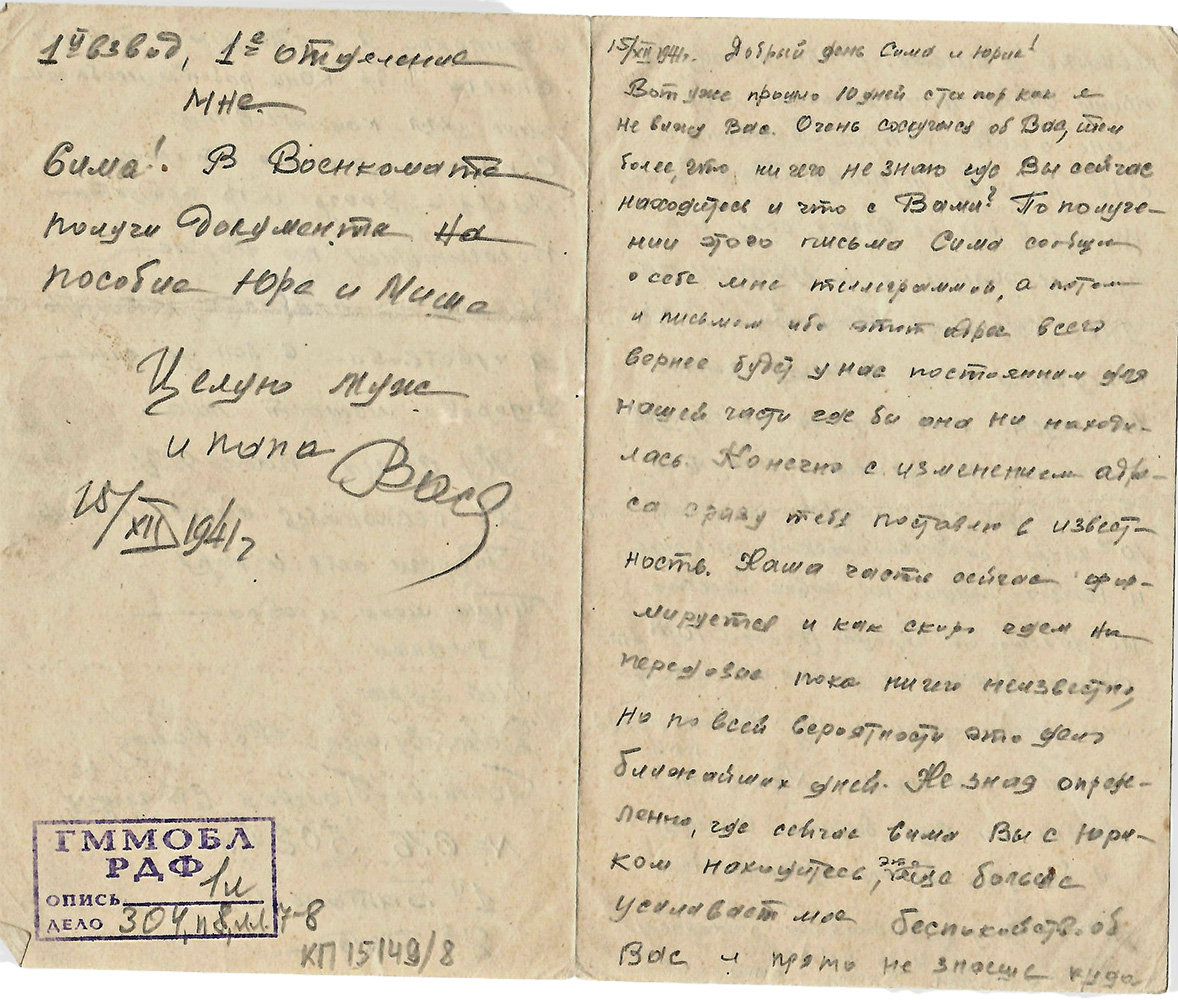 1й взвод, 1е отделение
мне.
Сима! В Военкомате
получи документы на
пособие Юра и Миша
Целую муж
и папа Вася
15/XII 1941г
ГММОБЛ
РДФ
ОПИСЬ 1л
ДЕЛО 304, п8, лл. 7-8
КП 15149/8
15/XII 1941г. Добрый день Сима и Юрик!
Вот уже прошло 10 дней с тех пор как я
не вижу Вас. Очень соскучился об Вас, тем
более, что ничего не знаю где Вы сейчас
находитесь и что с Вами? По получе-
нии этого письма Сима сообщи
о себе мне телеграммой, а потом
и письмом ибо этот адрес всего
вернее будет у нас постоянным для
нашей части где бы она ни находи-
лась. Конечно с изменением адре-
са сразу тебя поставлю в извест-
ность. Наша часть сейчас фор-
мируется и как скоро едем на
передовые пока ничего неизвестно,
но по всей вероятности это дело
ближайших дней. Не зная опреде-
ленно, где сейчас Вы с Юри-
ком находитесь, это еще больше
усиливает мое беспокойство об
Вас и прямо не знаешь куда